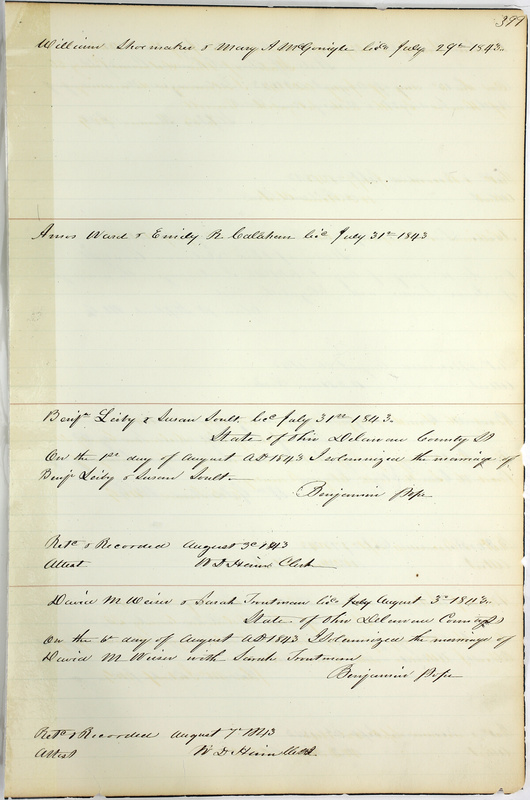 397
William Shoemaker & Mary A McGonigle Licc July 29th 1843.
Amos Ward & Emily R Calahan Licc July 31st 1843
Benjn Leiby & Susan Soult Licc July 31st 1843.
State of Ohio Delaware County SS
On the 1st day of August AD 1843 I solemnized the marriage of
Benjn Leiby & Susan Soult.
Benjamin Pope
Retd & Recorded August 3d 1843
Attest W D Heim Clerk
David M Weiser & Sarah Troutman Licc July August 3d 1843.
State of Ohio Delaware County SS
On the 6th day of August AD 1843 I Solemnized the marriage of
David M Weiser with Sarah Troutman
Benjamin Pope
Retd & Recorded August 7th 1843
Attest W D Heim Clerk